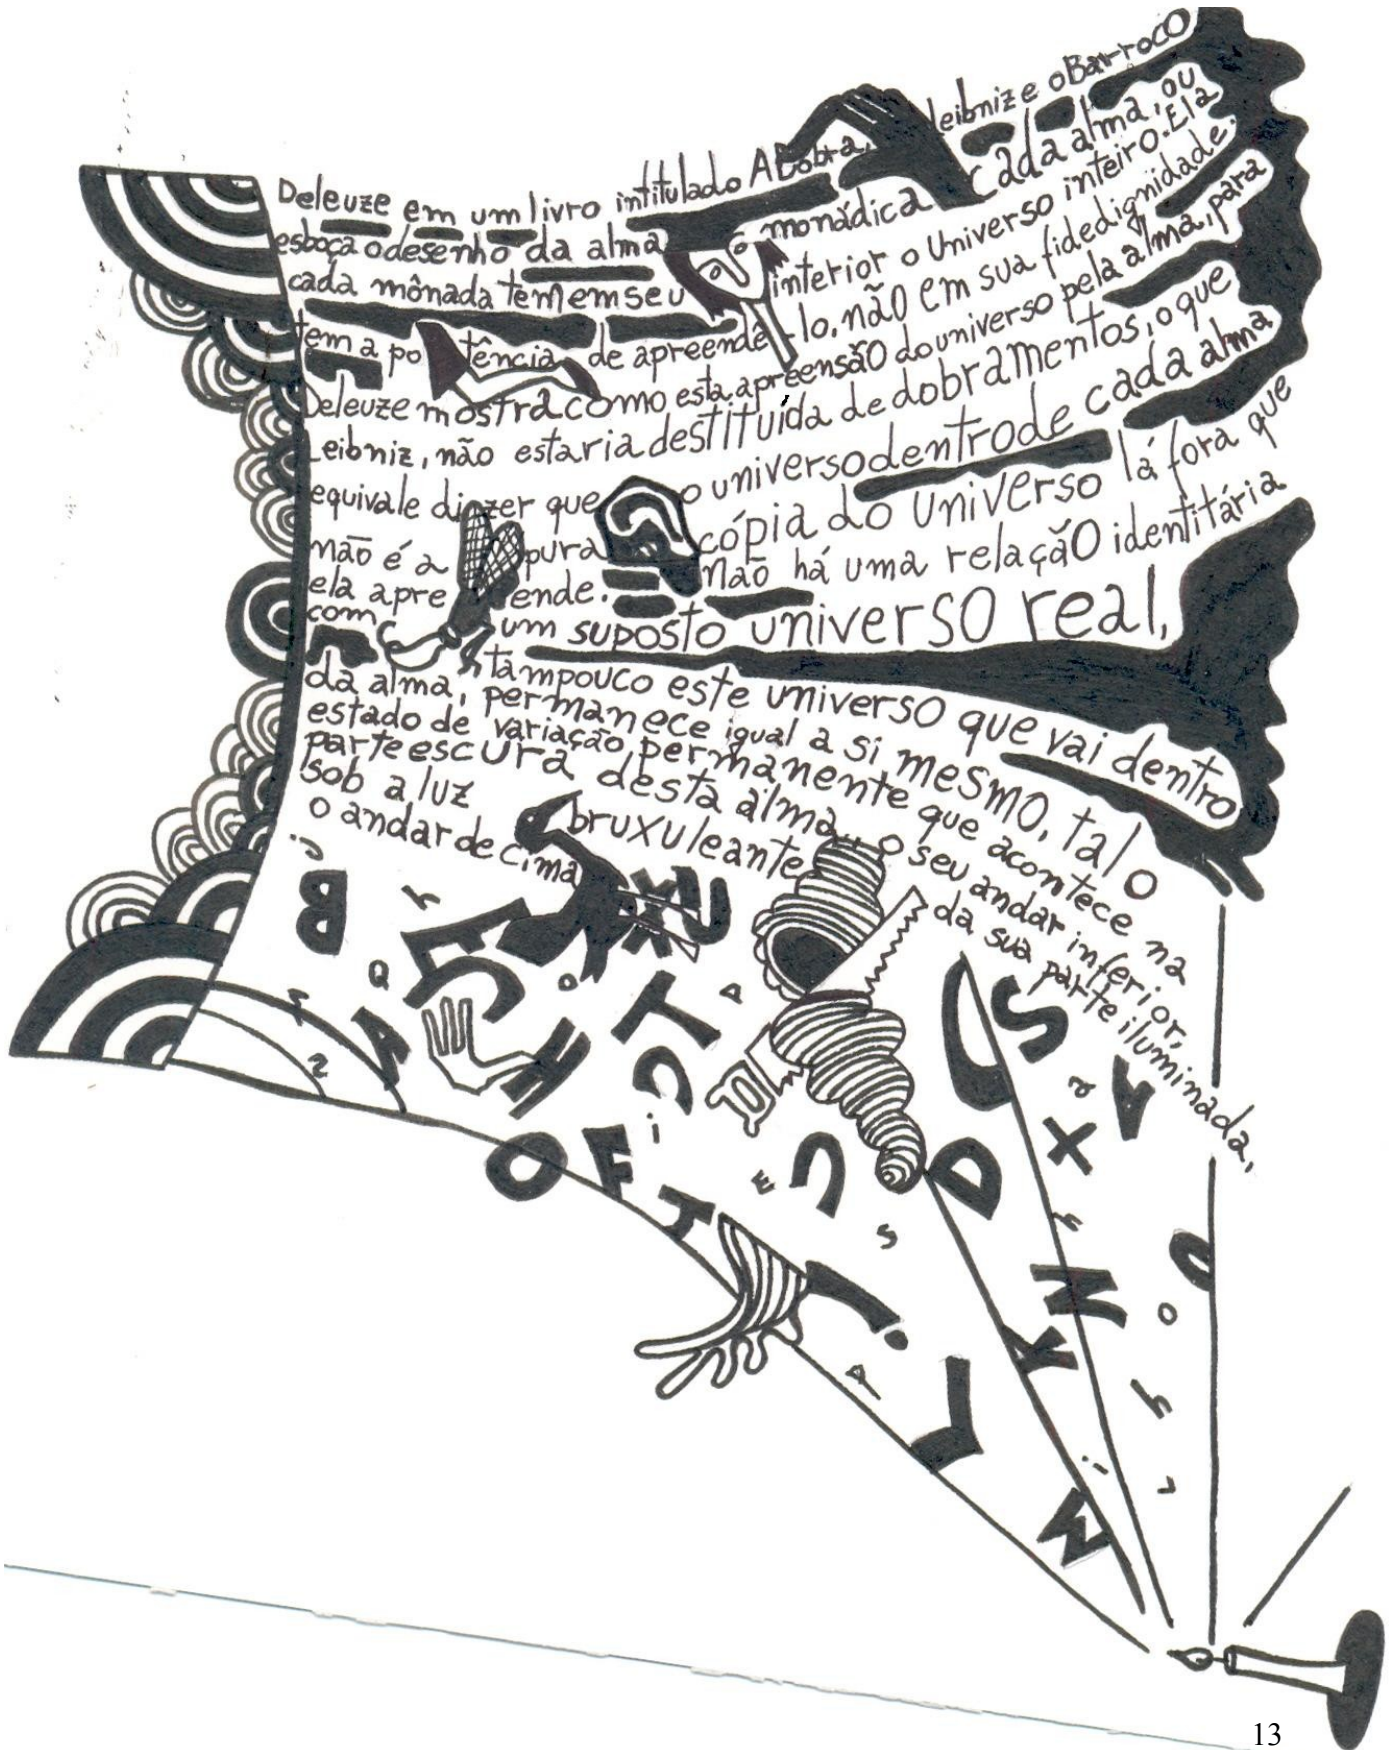 Deleuze em um livro intitulado A Dobra, leibniz e o Barroco
esboça o desenho da alma monádica cada alma, ou
cada mônada tem em seu interior o Universo inteiro. Ela
tem a po tência de apreendê-lo, não em sua fidedignidade.
Deleuze mostra como esta apreensão do universo pela alma, para
Leibniz, não estaria destituída de dobramentos, o que
equivale dizer que o universo dentro de cada alma
não é a pura cópia do Universo lá fora que
ela apre ende. não há uma relação identitária
com um suposto universo real,
tampouco este universo que vai dentro
da alma, permanece igual a si mesmo, tal o
estado de variação permanente que acontece na
parte escura desta alma... o seu andar inferior,
sob a luz bruxuleante da sua parte iluminada,
o andar de cima
13